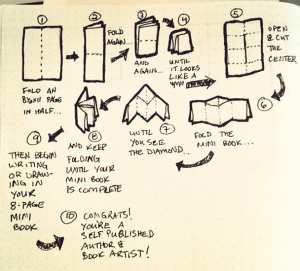 1
FOLD AN
8½X11 PAGE
IN HALF...
2
FOLD
AGAIN..
3
AND
AGAIN...
4
UNTIL
IT LOOKS
LIKE A
5
OPEN
& CUT
THE
CENTER
6
FOLD THE
MINI BOOK...
7
UNTIL
YOU SEE
THE DIAMOND..
8
AND KEEP
FOLDING
UNTIL YOUR
MINI BOOK
IS COMPLETE
9
THEN BEGIN
WRITING
OR DRAW-
ING IN
YOUR
8-PAGE
MINI
BOOK
10 CONGRATS!
YOU'RE A
SELF PUBLISHED
AUTHOR &
BOOK ARTIST!